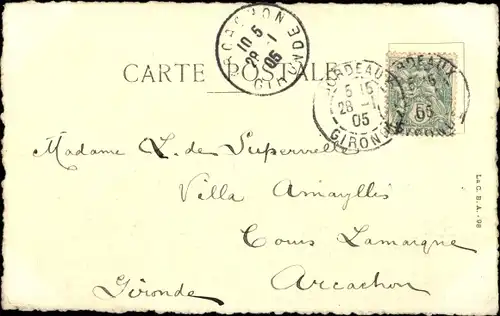 CARTE POSTALE
10 5
28 -1
05
BORDEAUX
5 15
28 -1
05
GIRONDE
BORDEAUX
05
GIRONDE
Madame L. de Supervelle
Villa Amaryllis
Cours Lamarque
Arcachon
Gironde
La C. B. A. - 98